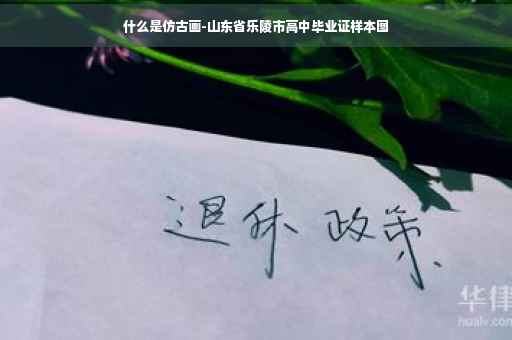 什么是仿古画-山东省乐陵市高中毕业证样本图
退休 政策
华律
hualv.com